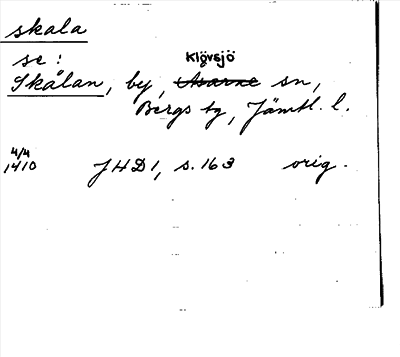 skala
se:
Klövsjö
Skålan, by, Åsarne sn,
Bergs tg, Jämtl. l.
4/4
1410 JHD1, s. 163 orig.